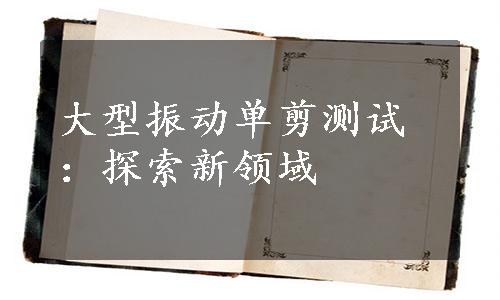 大型振动单剪测试
：探索新领域